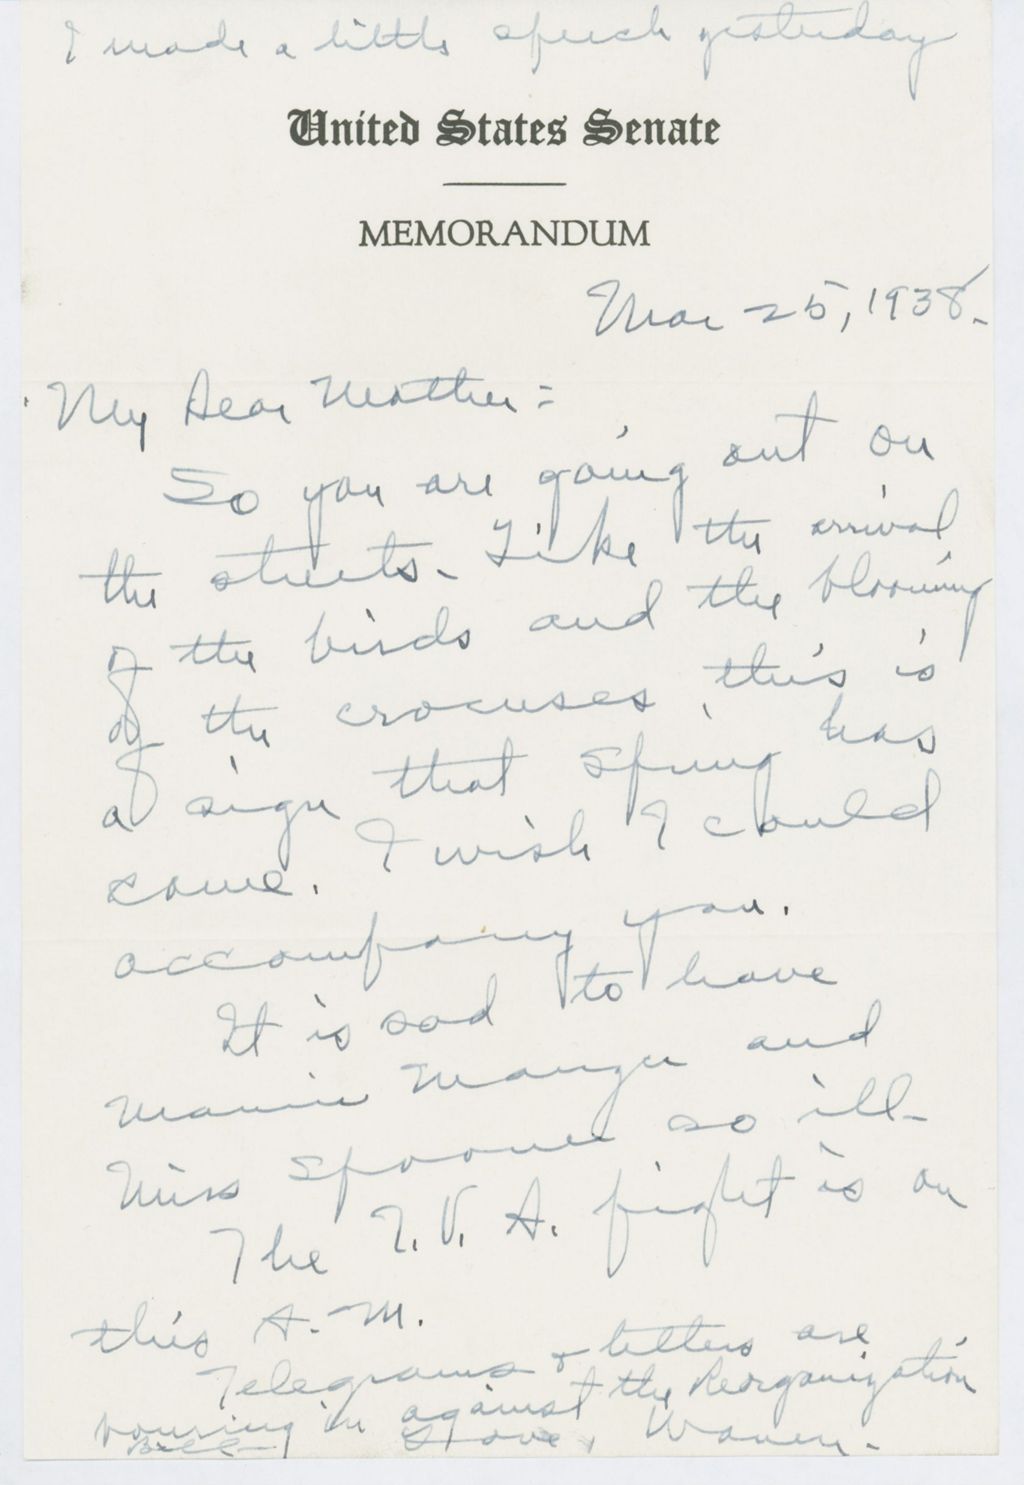 I made a little speech yesterday
United States Senate
MEMORANDUM
Mar 25, 1938.
My Dear Mother:
So you are going out on
the streets. Like the arrival
of the birds and the blooming
of the crocuses, this is
a sign that Spring has
come. I wish I could
accompany you.
It is sad to have
Mamie and
Miss Spooner so ill.
The T.V.A. fight is on
this A.M.
Telegrams & letters are
pouring in against the Reorganization
Bill Love, Warren.